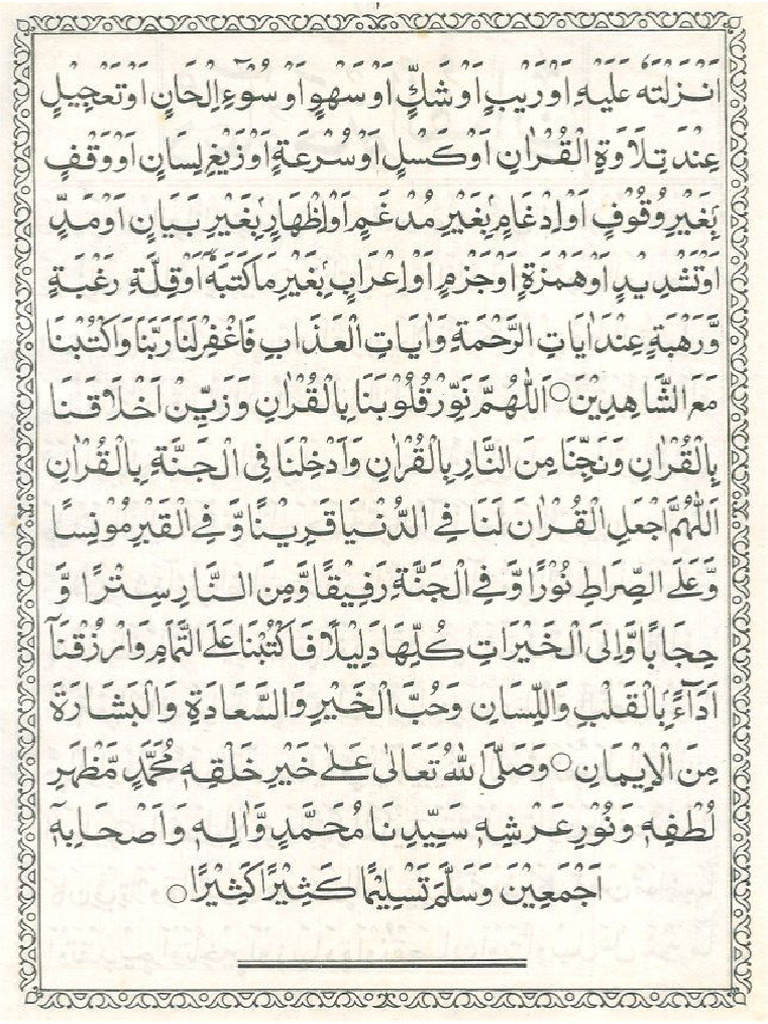 اَنْزَلْتَهٗ عَلَيْهِ اَوْرَيْبٍ اَوْشَكٍّ اَوْسَهْوٍ اَوْ سُوْٓءِ اِلْحَانٍ اَوْتَعْجِيْلٍ
عِنْدَ تِلَاوَةِ الْقُرْاٰنِ اَوْكَسْلٍ اَوْسُرْعَةٍ اَوْزَيْغِ لِسَانٍ اَوْوَقْفٍ
بِغَيْرِ وُقُوْفٍ اَوْاِدْغَامٍ بِغَيْرِ مُدْغَمٍ اَوْاِظْهَارٍ بِغَيْرِ بَيَانٍ اَوْمَدٍّ
اَوْتَشْدِيْدٍ اَوْهَمْزَةٍ اَوْجَزْمٍ اَوْاِعْرَابٍ بِغَيْرِ مَاكَتَبَهٗ اَوْقِلَّةِ رَغْبَةٍ
وَّرَهْبَةٍ عِنْدَاٰيَاتِ الرَّحْمَةِ وَاٰيَاتِ الْعَذَابِ فَاغْفِرْلَنَارَبَّنَا وَاكْتُبْنَا
مَعَ الشَّاهِدِيْنَ○ اَللّٰهُمَّ نَوِّرْ قُلُوْبَنَا بِالْقُرْاٰنِ وَزَيِّنْ اَخْلَاقَنَا
بِالْقُرْاٰنِ وَنَجِّنَا مِنَ النَّارِ بِالْقُرْاٰنِ وَاَدْخِلْنَا فِى الْجَنَّةِ بِالْقُرْاٰنِ
اَللّٰهُمَّ اجْعَلِ الْقُرْاٰنَ لَنَا فِى الدُّنْيَا قَرِيْنًا وَّ فِى الْقَبْرِ مُوْنِسًا
وَّعَلَى الصِّرَاطِ نُوْرًا وَّفِى الْجَنَّةِ رَفِيْقًا وَّمِنَ النَّارِ سِتْرًا وَّ
حِجَابًا وَّاِلَى الْخَيْرَاتِ كُلِّهَا دَلِيْلًا فَاكْتُبْنَا عَلَى التَّمَامِ وَارْزُقْنَآ
اَدَآءً بِالْقَلْبِ وَاللِّسَانِ وَحُبَّ الْخَيْرِ وَالسَّعَادَةِ وَالْبَشَارَةَ
مِنَ الْاِيْمَانِ○ وَصَلَّى اللّٰهُ تَعَالٰى عَلٰى خَيْرِ خَلْقِهٖ مُحَمَّدٍ مَّظْهَرِ
لُطْفِهٖ وَنُوْرِ عَرْشِهٖ سَيِّدِنَا مُحَمَّدٍ وَّاٰلِهٖ وَاَصْحَابِهٖٓ
اَجْمَعِيْنَ وَسَلَّمَ تَسْلِيْمًا كَثِيْرًا كَثِيْرًا○